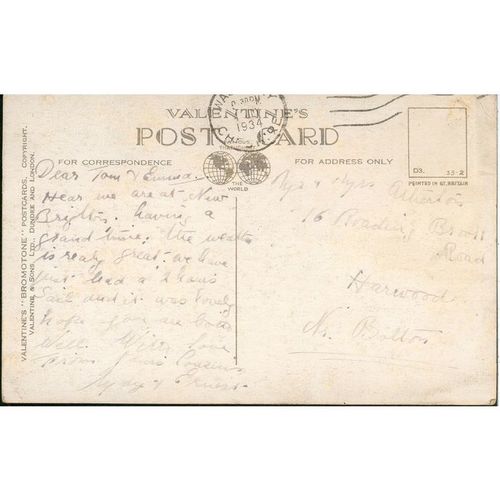 VALENTINE'S
POST CARD
FAMOUS
THROUGHOUT
THE
WORLD
FOR CORRESPONDENCE
FOR ADDRESS ONLY
1934
D3. 33-2
PRINTED IN GT. BRITAIN
VALENTINE'S "BROMOTONE" POSTCARDS. COPYRIGHT.
VALENTINE & SONS, LTD. DUNDEE AND LONDON.
Dear Tom & Emma.
Hear we are at New
Brighton. having a
grand time. the weather
is realy great. we have
just had a 2 hours
Sail and it was lovely
hope you are both
well. With love
from your Cousins
& Ernest.
Mr & Mrs
76 Reading Brook
Road
Harwood
Nr Bolton